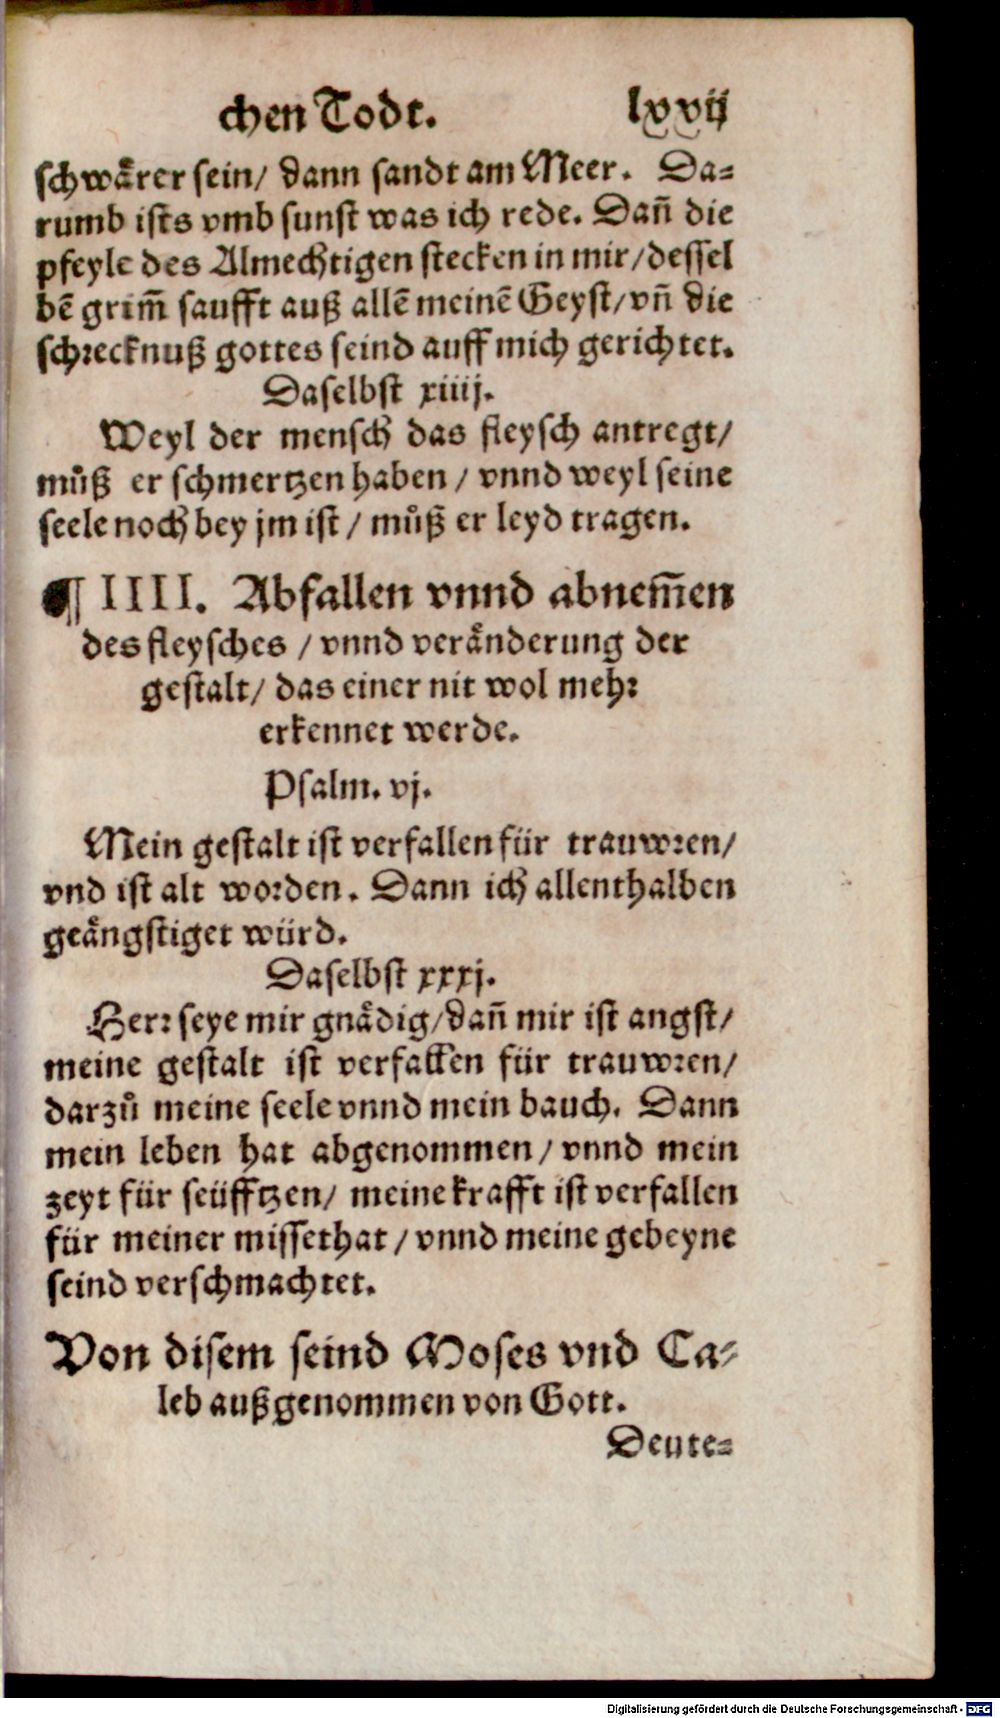 chen Todt. lxxvij
schwaͤrer sein/ dann sandt am Meer. Da-
rumb ists vmb sunst was ich rede. Dañ die
pfeyle des Almechtigen stecken in mir/dessel
bē grim̄ saufft auß allē meinē Geyst/vñ die
schrecknuß gottes seind auff mich gerichtet.
Daselbst xiiij.
Weyl der mensch das fleysch antregt/
muͦß er schmertzen haben / vnnd weyl seine
seele noch bey jm ist / muͦß er leyd tragen.
¶ IIII. Abfallen vnnd abnem̄en
des fleysches / vnnd veraͤnderung der
gestalt/ das einer nit wol mehr
erkennet werde.
Psalm. vj.
Mein gestalt ist verfallen für trauwren/
vnd ist alt worden. Dann ich allenthalben
geaͤngstiget würd.
Daselbst xxxj.
Herr seye mir gnaͤdig/dañ mir ist angst/
meine gestalt ist verfallen für trauwren/
darzuͦ meine seele vnnd mein bauch. Dann
mein leben hat abgenommen/ vnnd mein
zeyt für seüfftzen/ meine krafft ist verfallen
für meiner missethat / vnnd meine gebeyne
seind verschmachtet.
Von disem seind Moses vnd Ca-
leb außgenommen von Gott.
Deute-
Digitalisierung gefördert durch die Deutsche Forschungsgemeinschaft - DFG